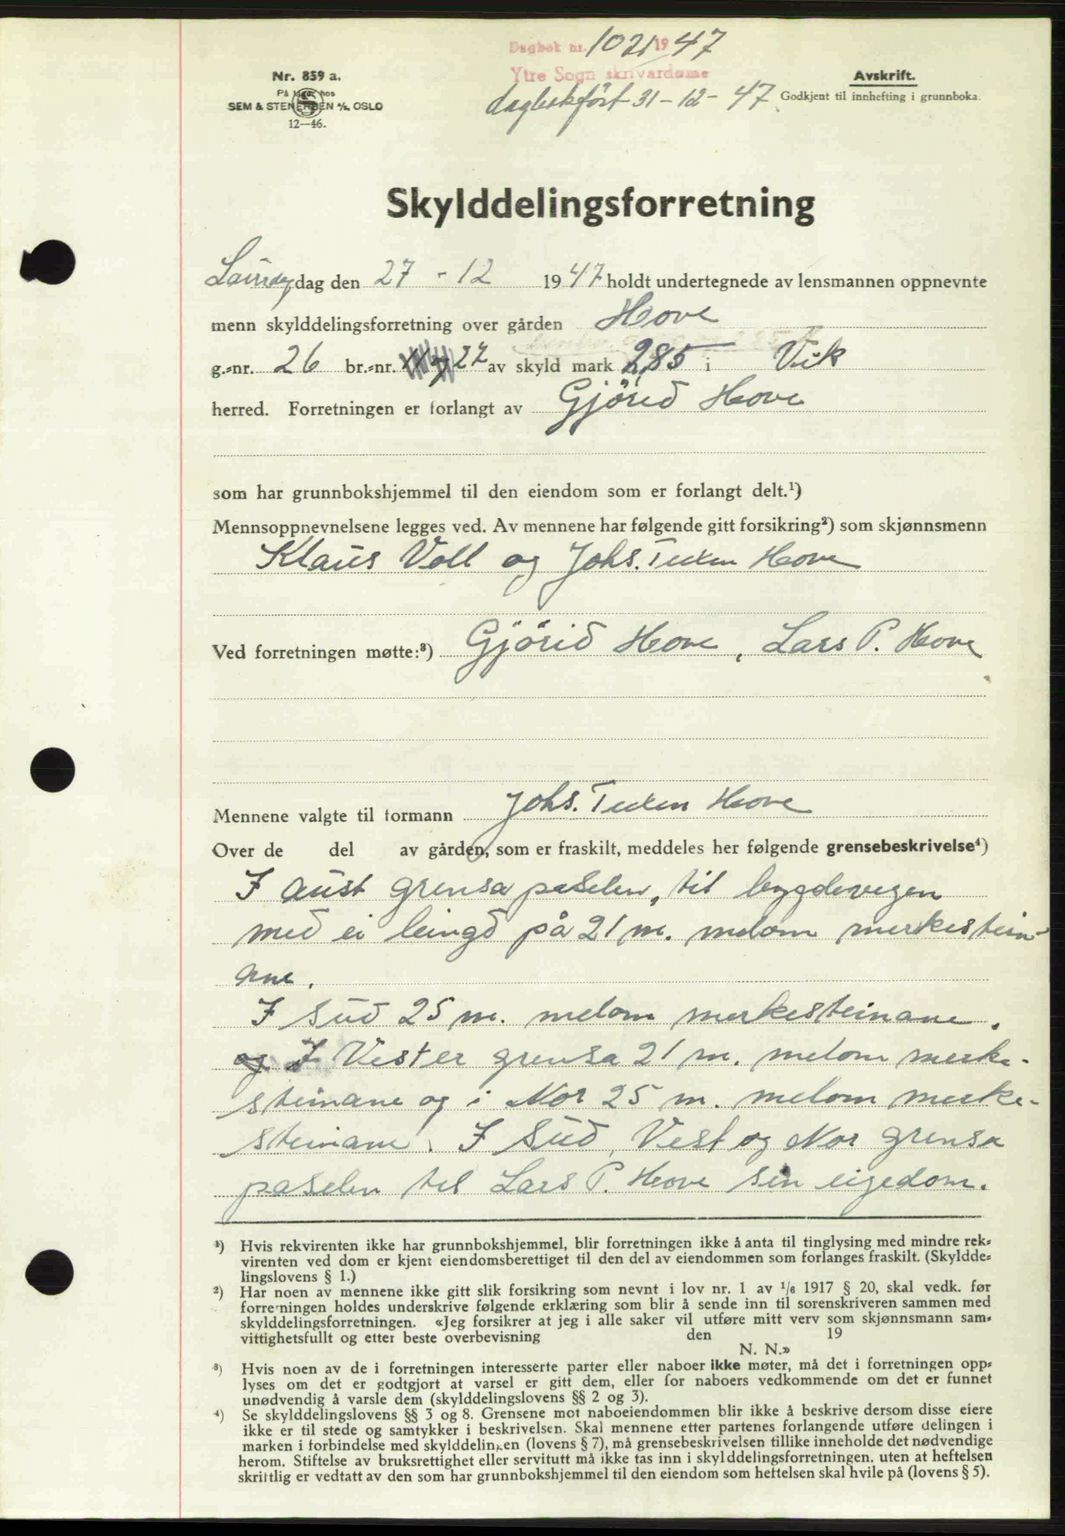 Dagbok nr. 1021 1947
Ytre Sogn skrivardøme
dagbokført 31-12-47.
Nr. 859 a.
På lager hos
SEM & STENERSEN A/S, OSLO
12—46.
Avskrift.
Godkjent til innhefting i grunnboka.
Skylddelingsforretning
dag den 27 - 12 1947 holdt undertegnede av lensmannen oppnevnte
menn skylddelingsforretning over gården Hove
g.-nr. 26 br.-nr. 27 av skyld mark 2,85 i Vik
herred. Forretningen er forlangt av Gjørid Hove
som har grunnbokshjemmel til den eiendom som er forlangt delt.¹)
Mennsoppnevnelsene legges ved. Av mennene har følgende gitt forsikring²) som skjønnsmenn
Klaus Voll og Johs. Tuxen Hove
Ved forretningen møtte:³) Gjørid Hove, Lars P. Hove
Mennene valgte til formann Johs. Tuxen Hove
Over de del av gården, som er fraskilt, meddeles her følgende grensebeskrivelse⁴)
I aust grensa paselen, til bygdevegen
med ei leingd på 21 m. melom merkestein-
ane.
I Sud 25 m. melom merkesteinane.
og I Vest er grensa 21 m. melom merke-
steinane og i Nor 25 m. melom merke-
steinane. I Sud, Vest og Nor grensa
paselen til Lars P. Hove sin eigedom.
¹) Hvis rekvirenten ikke har grunnbokshjemmel, blir forretningen ikke å anta til tinglysing med mindre rek-
virenten ved dom er kjent eiendomsberettiget til den del av eiendommen som forlanges fraskilt. (Skyldde-
lingslovens § 1.)
²) Har noen av mennene ikke gitt slik forsikring som nevnt i lov nr. 1 av 1/6 1917 § 20, skal vedk. før
forretningen holdes underskrive følgende erklæring som blir å sende inn til sorenskriveren sammen med
skylddelingsforretningen. «Jeg forsikrer at jeg i alle saker vil utføre mitt verv som skjønnsmann sam-
vittighetsfullt og etter beste overbevisning den 19
N. N.»
³) Hvis noen av de i forretningen interesserte parter eller naboer ikke møter, må det i forretningen opp-
lyses om det er godtgjort at varsel er gitt dem, eller for naboers vedkommende om det er funnet
unødvendig å varsle dem (skylddelingslovens §§ 2 og 3).
⁴) Se skylddelingslovens §§ 3 og 8. Grensene mot naboeiendommen blir ikke å beskrive dersom disse eiere
ikke er til stede og samtykker i beskrivelsen. Skal mennene etter partenes forlangende utføre delingen i
marken i forbindelse med skylddelingen (lovens § 7), må grensebeskrivelsen tillike inneholde det nødvendige
herom. Stiftelse av bruksrettighet eller servitutt må ikke tas inn i skylddelingsforretningen, uten at heftelsen
skriftlig er vedtatt av den som har grunnbokshjemmel til den eiendom som heftelsen skal hvile på (lovens § 5).